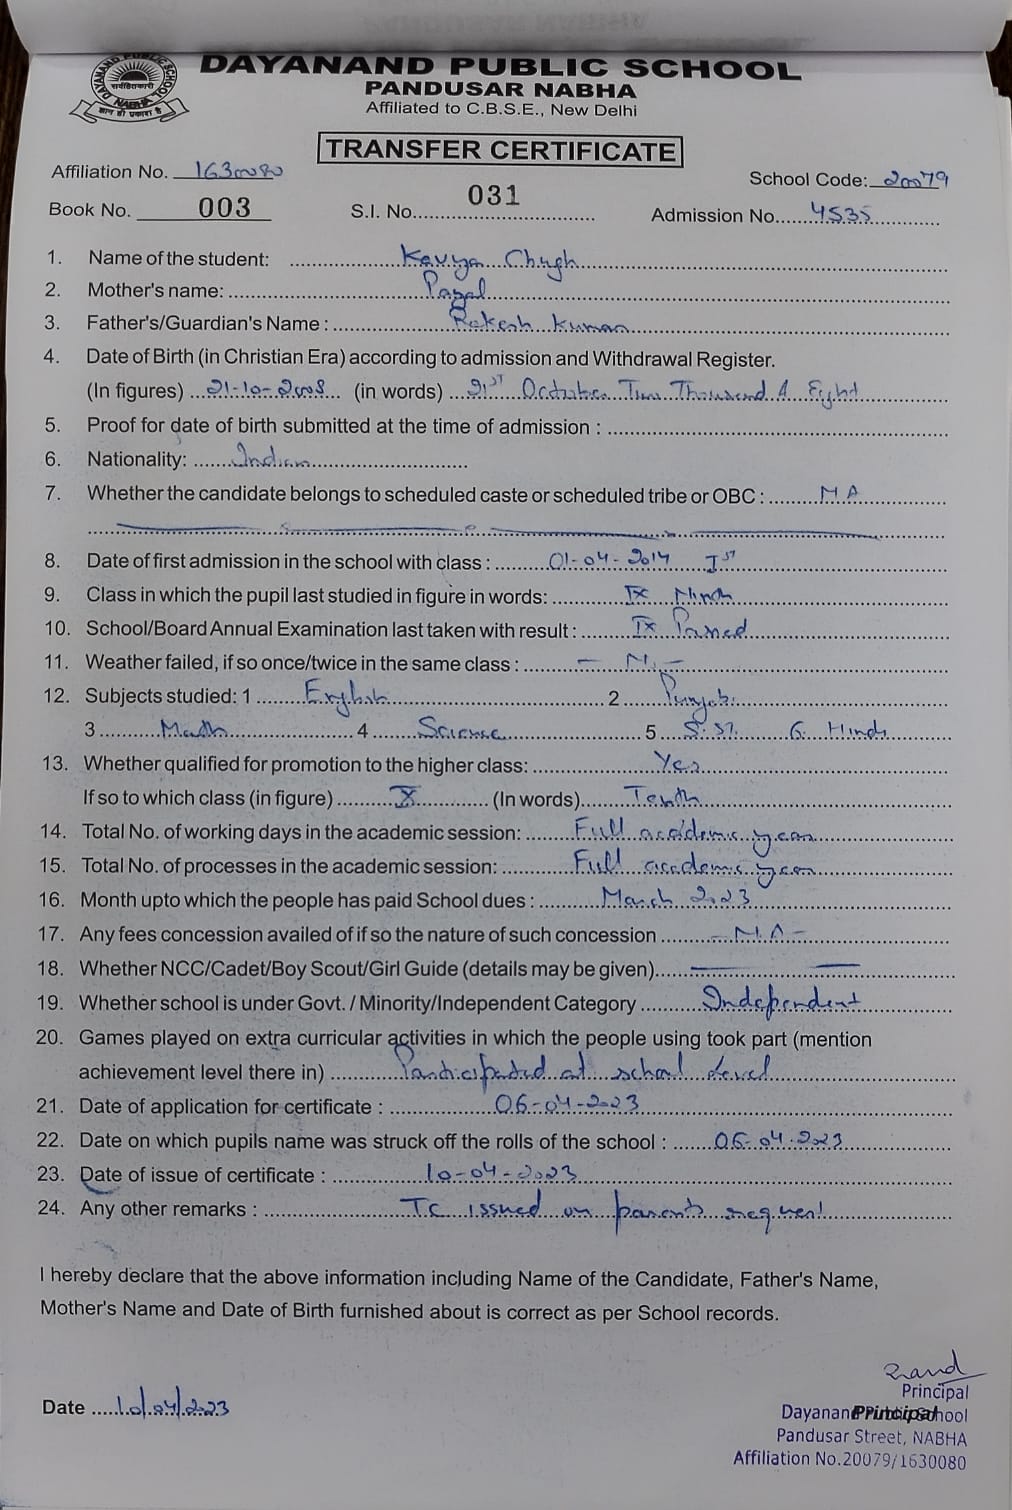 DAYANAND PUBLIC SCHOOL
PANDUSAR NABHA
Affiliated to C.B.S.E., New Delhi
TRANSFER CERTIFICATE
Affiliation No. 1630080
School Code: 20079
Book No. 003 S.I. No. 031 Admission No. 4535
1. Name of the student: Kavya Chugh
2. Mother's name: Payal
3. Father's/Guardian's Name : Rakesh Kumar
4. Date of Birth (in Christian Era) according to admission and Withdrawal Register.
(In figures) 21-10-2008 (in words) 21ST October Two Thousand & Eight
5. Proof for date of birth submitted at the time of admission :
6. Nationality: Indian
7. Whether the candidate belongs to scheduled caste or scheduled tribe or OBC : NA
8. Date of first admission in the school with class : 01-04-2014 Ist
9. Class in which the pupil last studied in figure in words: IX Ninth
10. School/Board Annual Examination last taken with result : IX Passed
11. Weather failed, if so once/twice in the same class :
12. Subjects studied: 1 English 2 Punjabi
3 Math 4 Science 5 S.St. 6. Hindi
13. Whether qualified for promotion to the higher class: Yes
If so to which class (in figure) X (In words) Tenth
14. Total No. of working days in the academic session: Full academic year
15. Total No. of processes in the academic session: Full academic year
16. Month upto which the people has paid School dues : March 2023
17. Any fees concession availed of if so the nature of such concession - N.A -
18. Whether NCC/Cadet/Boy Scout/Girl Guide (details may be given)
19. Whether school is under Govt. / Minority/Independent Category Independent
20. Games played on extra curricular activities in which the people using took part (mention
achievement level there in) Participated at school Level
21. Date of application for certificate : 06-04-2023
22. Date on which pupils name was struck off the rolls of the school : 06-04-2023
23. Date of issue of certificate : 10-04-2023
24. Any other remarks : TC issued on parents request
I hereby declare that the above information including Name of the Candidate, Father's Name,
Mother's Name and Date of Birth furnished about is correct as per School records.
Date 10/04/2023
Principal
Dayanand Public School
Principal
Pandusar Street, NABHA
Affiliation No.20079/1630080